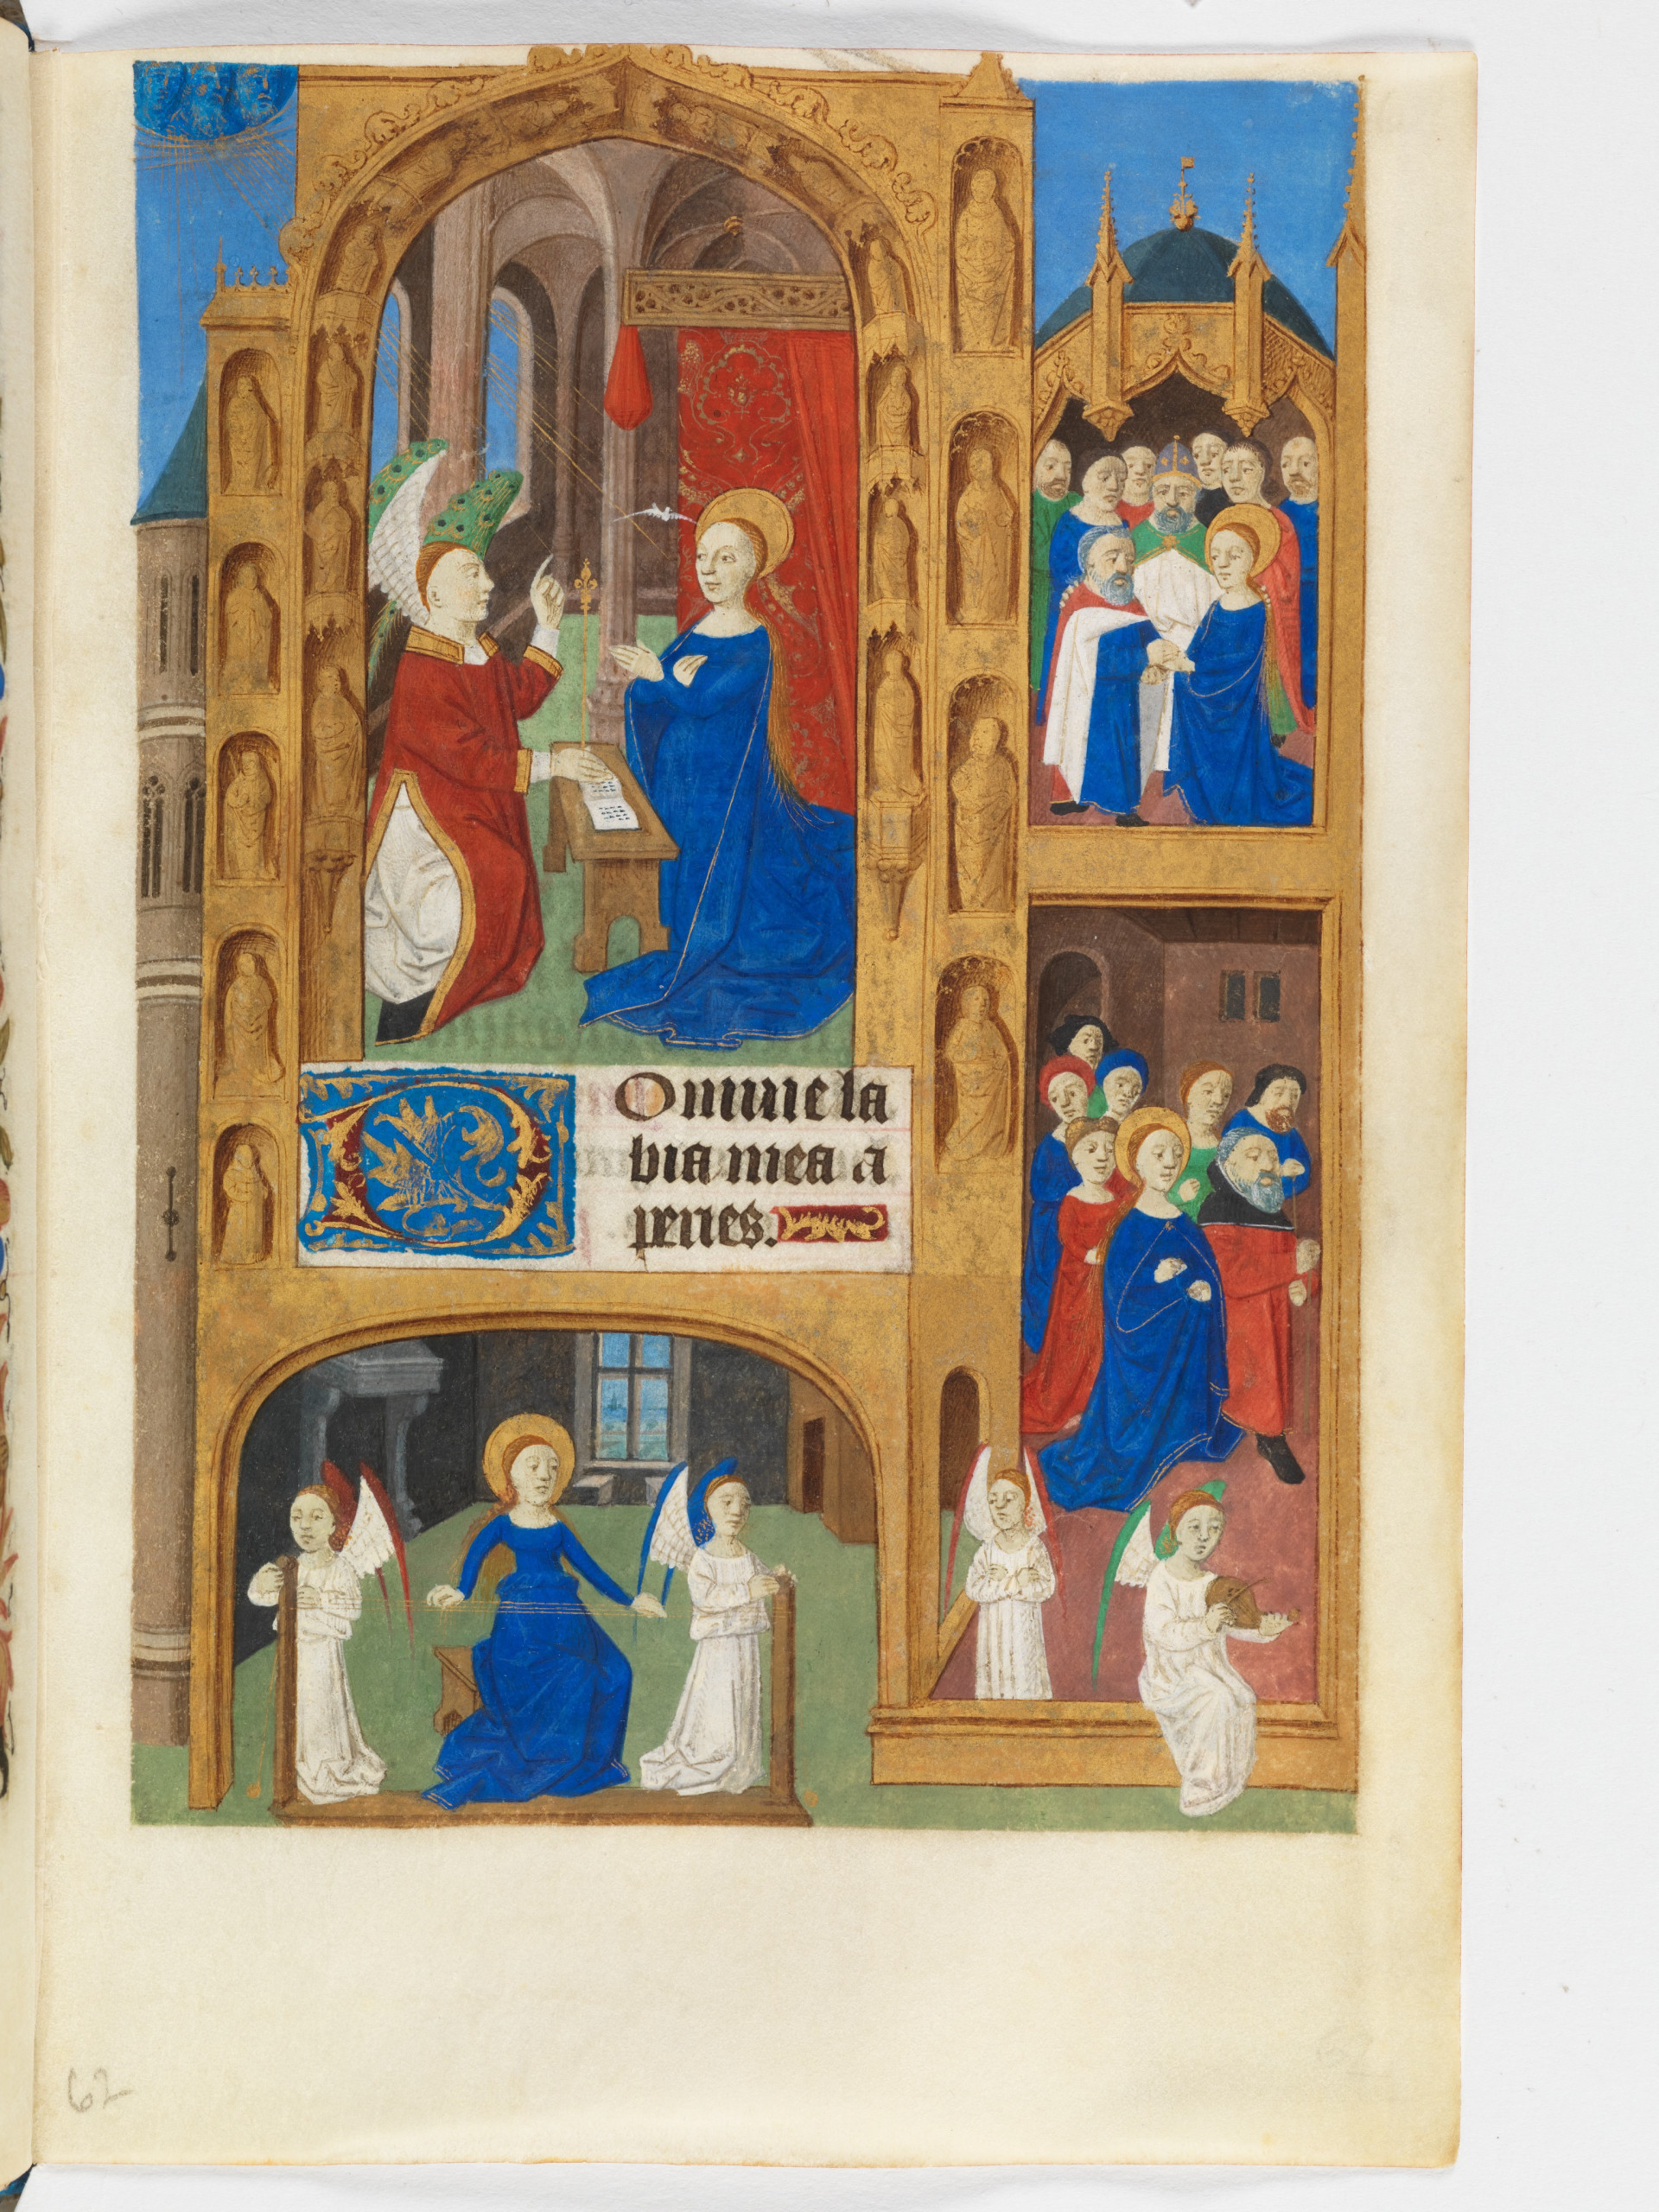 Domine la
bia mea a
peries.
62